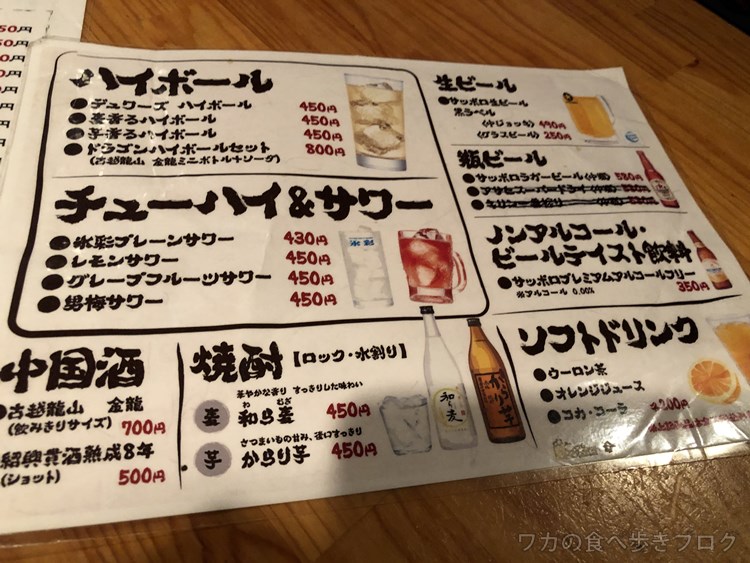 ハイボール
デュワーズ ハイボール 450円
麦香るハイボール 450円
芋香るハイボール 450円
ドラゴンハイボールセット 800円
(古越龍山 金龍ミニボトル+ソーダ)
チューハイ&サワー
氷彩プレーンサワー 430円
レモンサワー 450円
グレープフルーツサワー 450円
男梅サワー 450円
生ビール
サッポロ生ビール
黒ラベル
(中ジョッキ) 490円
(グラスビール) 250円
瓶ビール
サッポロラガービール(中瓶) 530円
アサヒスーパードライ(中瓶)
キリン一番搾り(中瓶)
ノンアルコール・
ビールテイスト飲料
サッポロプレミアムアルコールフリー
※アルコール 0.00% 350円
中国酒
古越龍山 金龍
(飲みきりサイズ) 700円
紹興貴酒熟成8年
(ショット) 500円
焼酎【ロック・水割り】
華やかな香り すっきりした味わい
麦 和ら麦 450円
わ むぎ
さつまいもの甘み、後口すっきり
芋 からり芋 450円
ソフトドリンク
ウーロン茶
オレンジジュース
コカ・コーラ
各200円
ワカの食べ歩きブログ